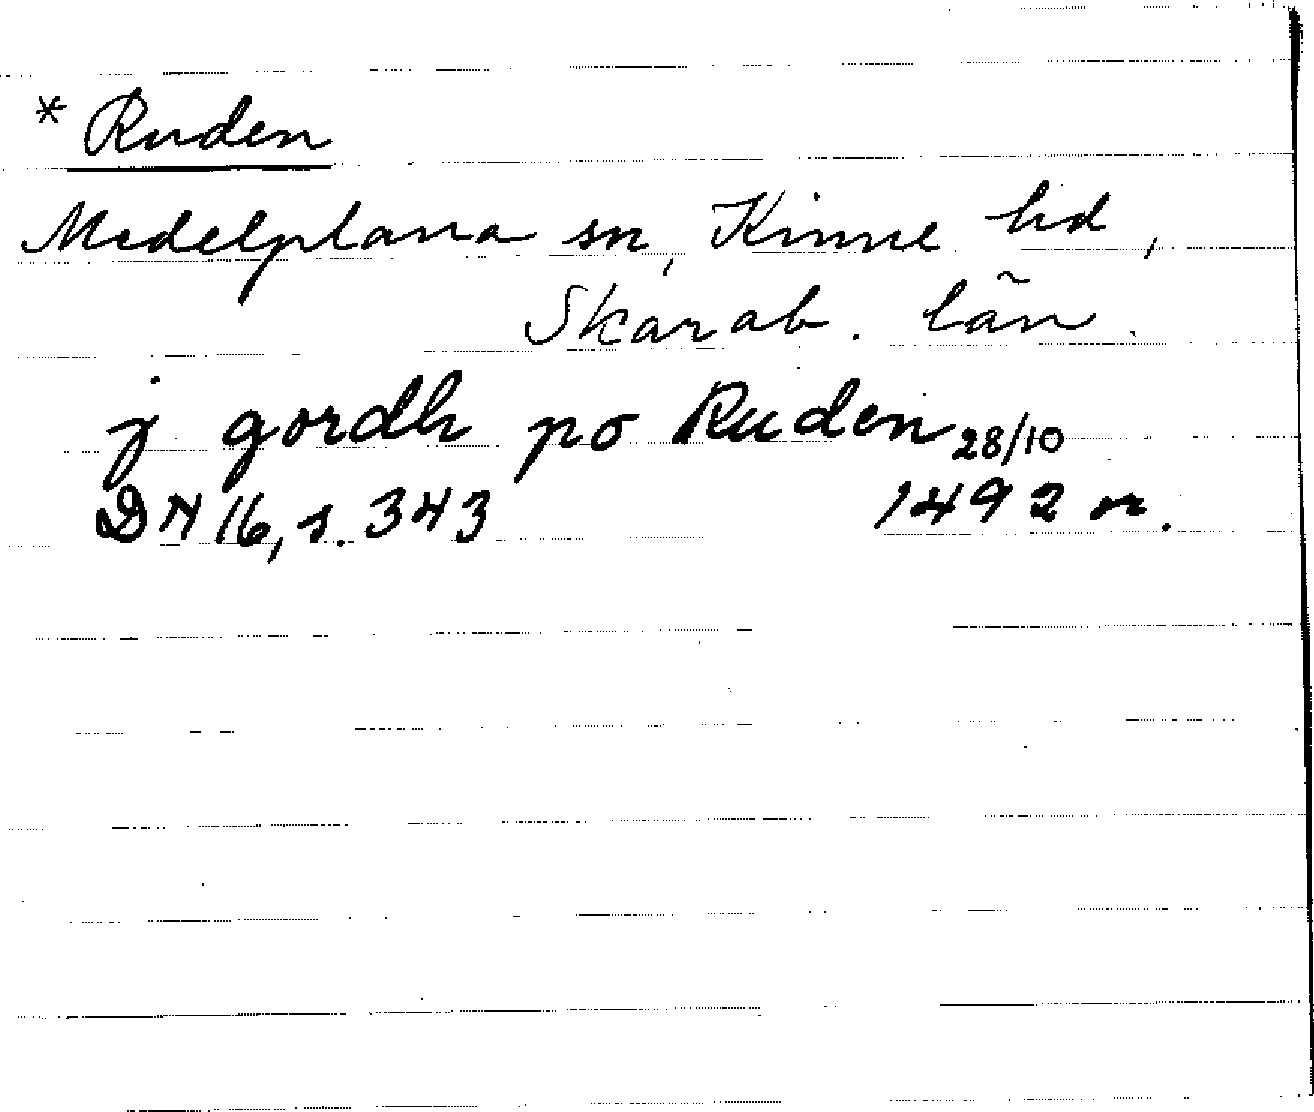 * Ruden
Medelplana sn, Kinne hd,
Skarab. län.
j gordh po Ruden 28/10
DN 16, s. 343 1492 or.